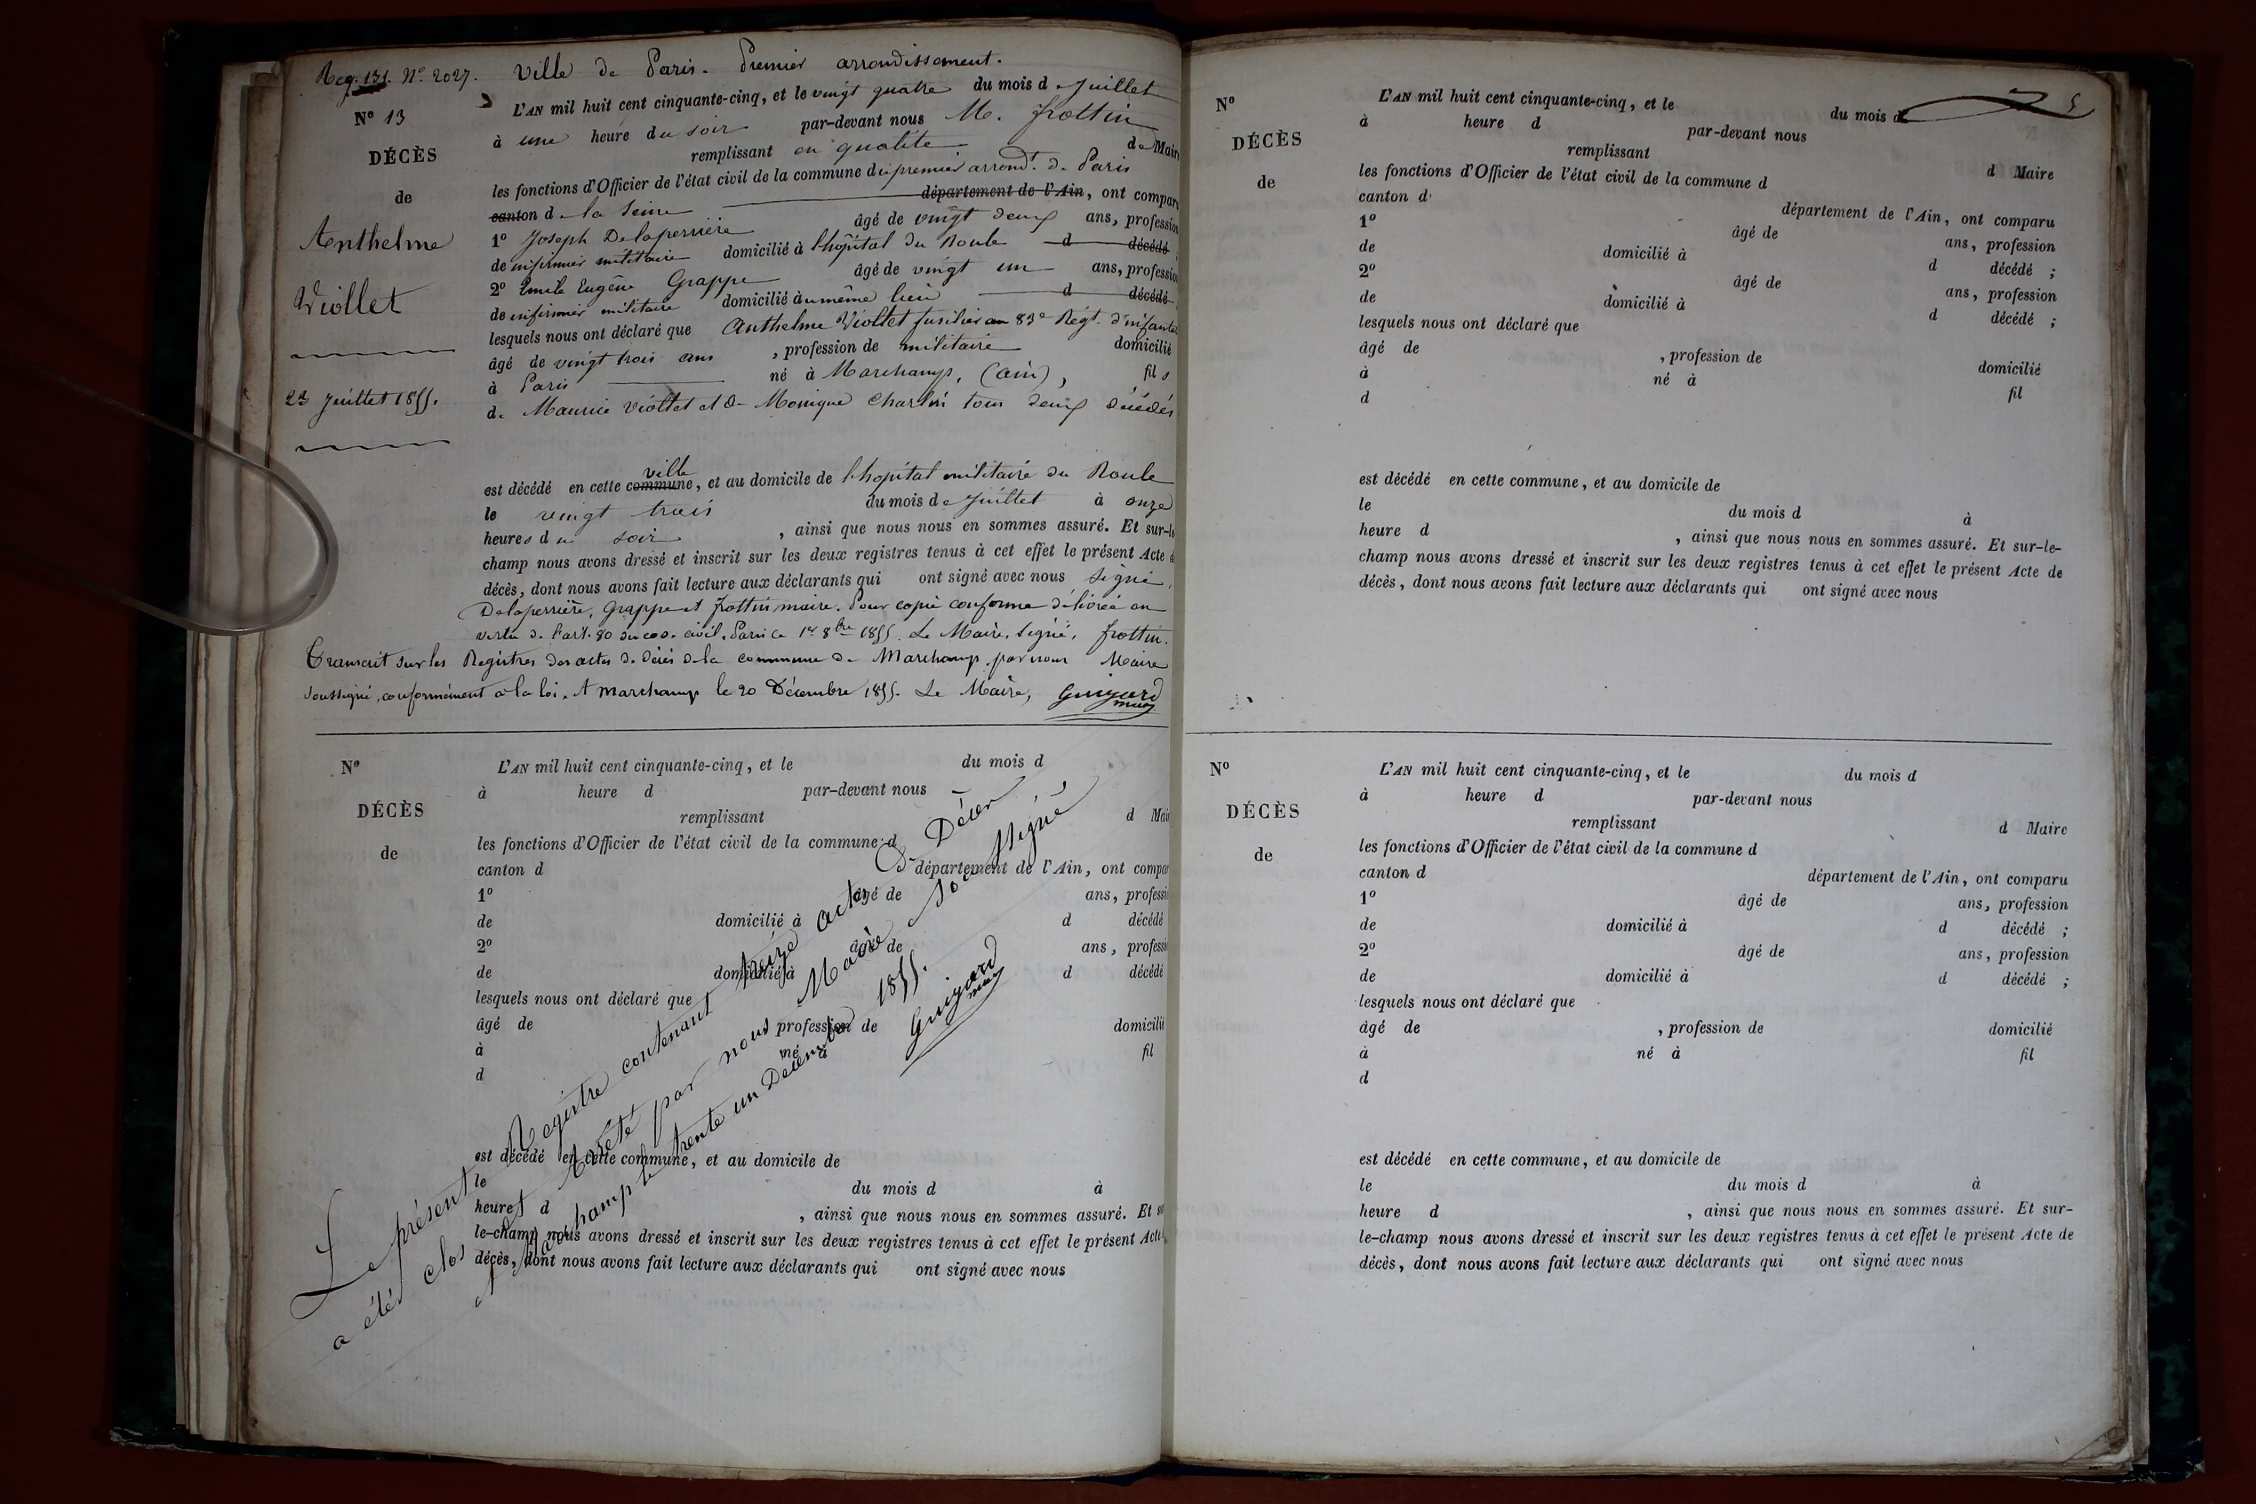 Reg. 131. N° 2027. Ville de Paris. Premier arrondissement.
N° 13
DÉCÈS
de
Anthelme
Viollet
23 Juillet 1855.
L'AN mil huit cent cinquante-cinq, et le vingt quatre du mois d Juillet
à une heure du soir par-devant nous M. frottin
remplissant en qualité de Maire
les fonctions d'Officier de l'état civil de la commune du premier arrondt. de Paris
canton de la Seine département de l'Ain, ont comparu
1° Joseph Delaperrière âgé de vingt deux ans, profession
de infirmier militaire domicilié à l'hôpital du Roule d décédé
2° Emile Eugène Grappe âgé de vingt un ans, profession
de infirmier militaire domicilié au même lieu d décédé
lesquels nous ont déclaré que Anthelme Viollet fusilier au 83e Régt. d'infanterie
âgé de vingt trois ans, profession de militaire domicilié
à Paris né à Marchamp, (ain), fils
de Maurice Viollet et de Monique Charlin tous deux décédés
ville
est décédé en cette commune, et au domicile de l'hopital militaire du Roule
le vingt trois du mois de Juillet à onze
heures du soir, ainsi que nous nous en sommes assuré. Et sur-le
champ nous avons dressé et inscrit sur les deux registres tenus à cet effet le présent Acte de
décès, dont nous avons fait lecture aux déclarants qui ont signé avec nous signé,
Delaperrière, Grappe et frottin maire. Pour copie conforme délivrée en
vertu de l'art. 80 du cod. civil. Paris ce 1er 8bre 1855. Le Maire, signé, frottin.
Transcrit sur les Registres des actes de décès de la commune de Marchamp par nous Maire
soussigné, conformément à la loi. A Marchamp le 20 Décembre 1855. Le Maire, Guigard
maire
N°
DÉCÈS
de
L'AN mil huit cent cinquante-cinq, et le du mois d
à heure d par-devant nous
remplissant d Maire
les fonctions d'Officier de l'état civil de la commune d
canton d département de l'Ain, ont comparu
1° âgé de ans, profession
de domicilié à d décédé
2° âgé de ans, profession
de domicilié à d décédé
lesquels nous ont déclaré que
âgé de profession de domicilié
à né à fil
d
est décédé en cette commune, et au domicile de
le du mois d à
heure d, ainsi que nous nous en sommes assuré. Et sur
le-champ nous avons dressé et inscrit sur les deux registres tenus à cet effet le présent Acte
décès, dont nous avons fait lecture aux déclarants qui ont signé avec nous
Le présent Registre contenant treize actes de Décès
a été clos et Arrêté par nous Maire soussigné
A Marchamp le trente un Décembre 1855.
Guigard
maire
5
N°
DÉCÈS
de
L'AN mil huit cent cinquante-cinq, et le du mois d
à heure d par-devant nous
remplissant d Maire
les fonctions d'Officier de l'état civil de la commune d
canton d département de l'Ain, ont comparu
1° âgé de ans, profession
de domicilié à d décédé ;
2° âgé de ans, profession
de domicilié à d décédé ;
lesquels nous ont déclaré que
âgé de , profession de domicilié
à né à fil
d
est décédé en cette commune, et au domicile de
le du mois d à
heure d , ainsi que nous nous en sommes assuré. Et sur-le-
champ nous avons dressé et inscrit sur les deux registres tenus à cet effet le présent Acte de
décès, dont nous avons fait lecture aux déclarants qui ont signé avec nous
N°
DÉCÈS
de
L'AN mil huit cent cinquante-cinq, et le du mois d
à heure d par-devant nous
remplissant d Maire
les fonctions d'Officier de l'état civil de la commune d
canton d département de l'Ain, ont comparu
1° âgé de ans, profession
de domicilié à d décédé ;
2° âgé de ans, profession
de domicilié à d décédé ;
lesquels nous ont déclaré que
âgé de , profession de domicilié
à né à fil
d
est décédé en cette commune, et au domicile de
le du mois d à
heure d , ainsi que nous nous en sommes assuré. Et sur-
le-champ nous avons dressé et inscrit sur les deux registres tenus à cet effet le présent Acte de
décès, dont nous avons fait lecture aux déclarants qui ont signé avec nous